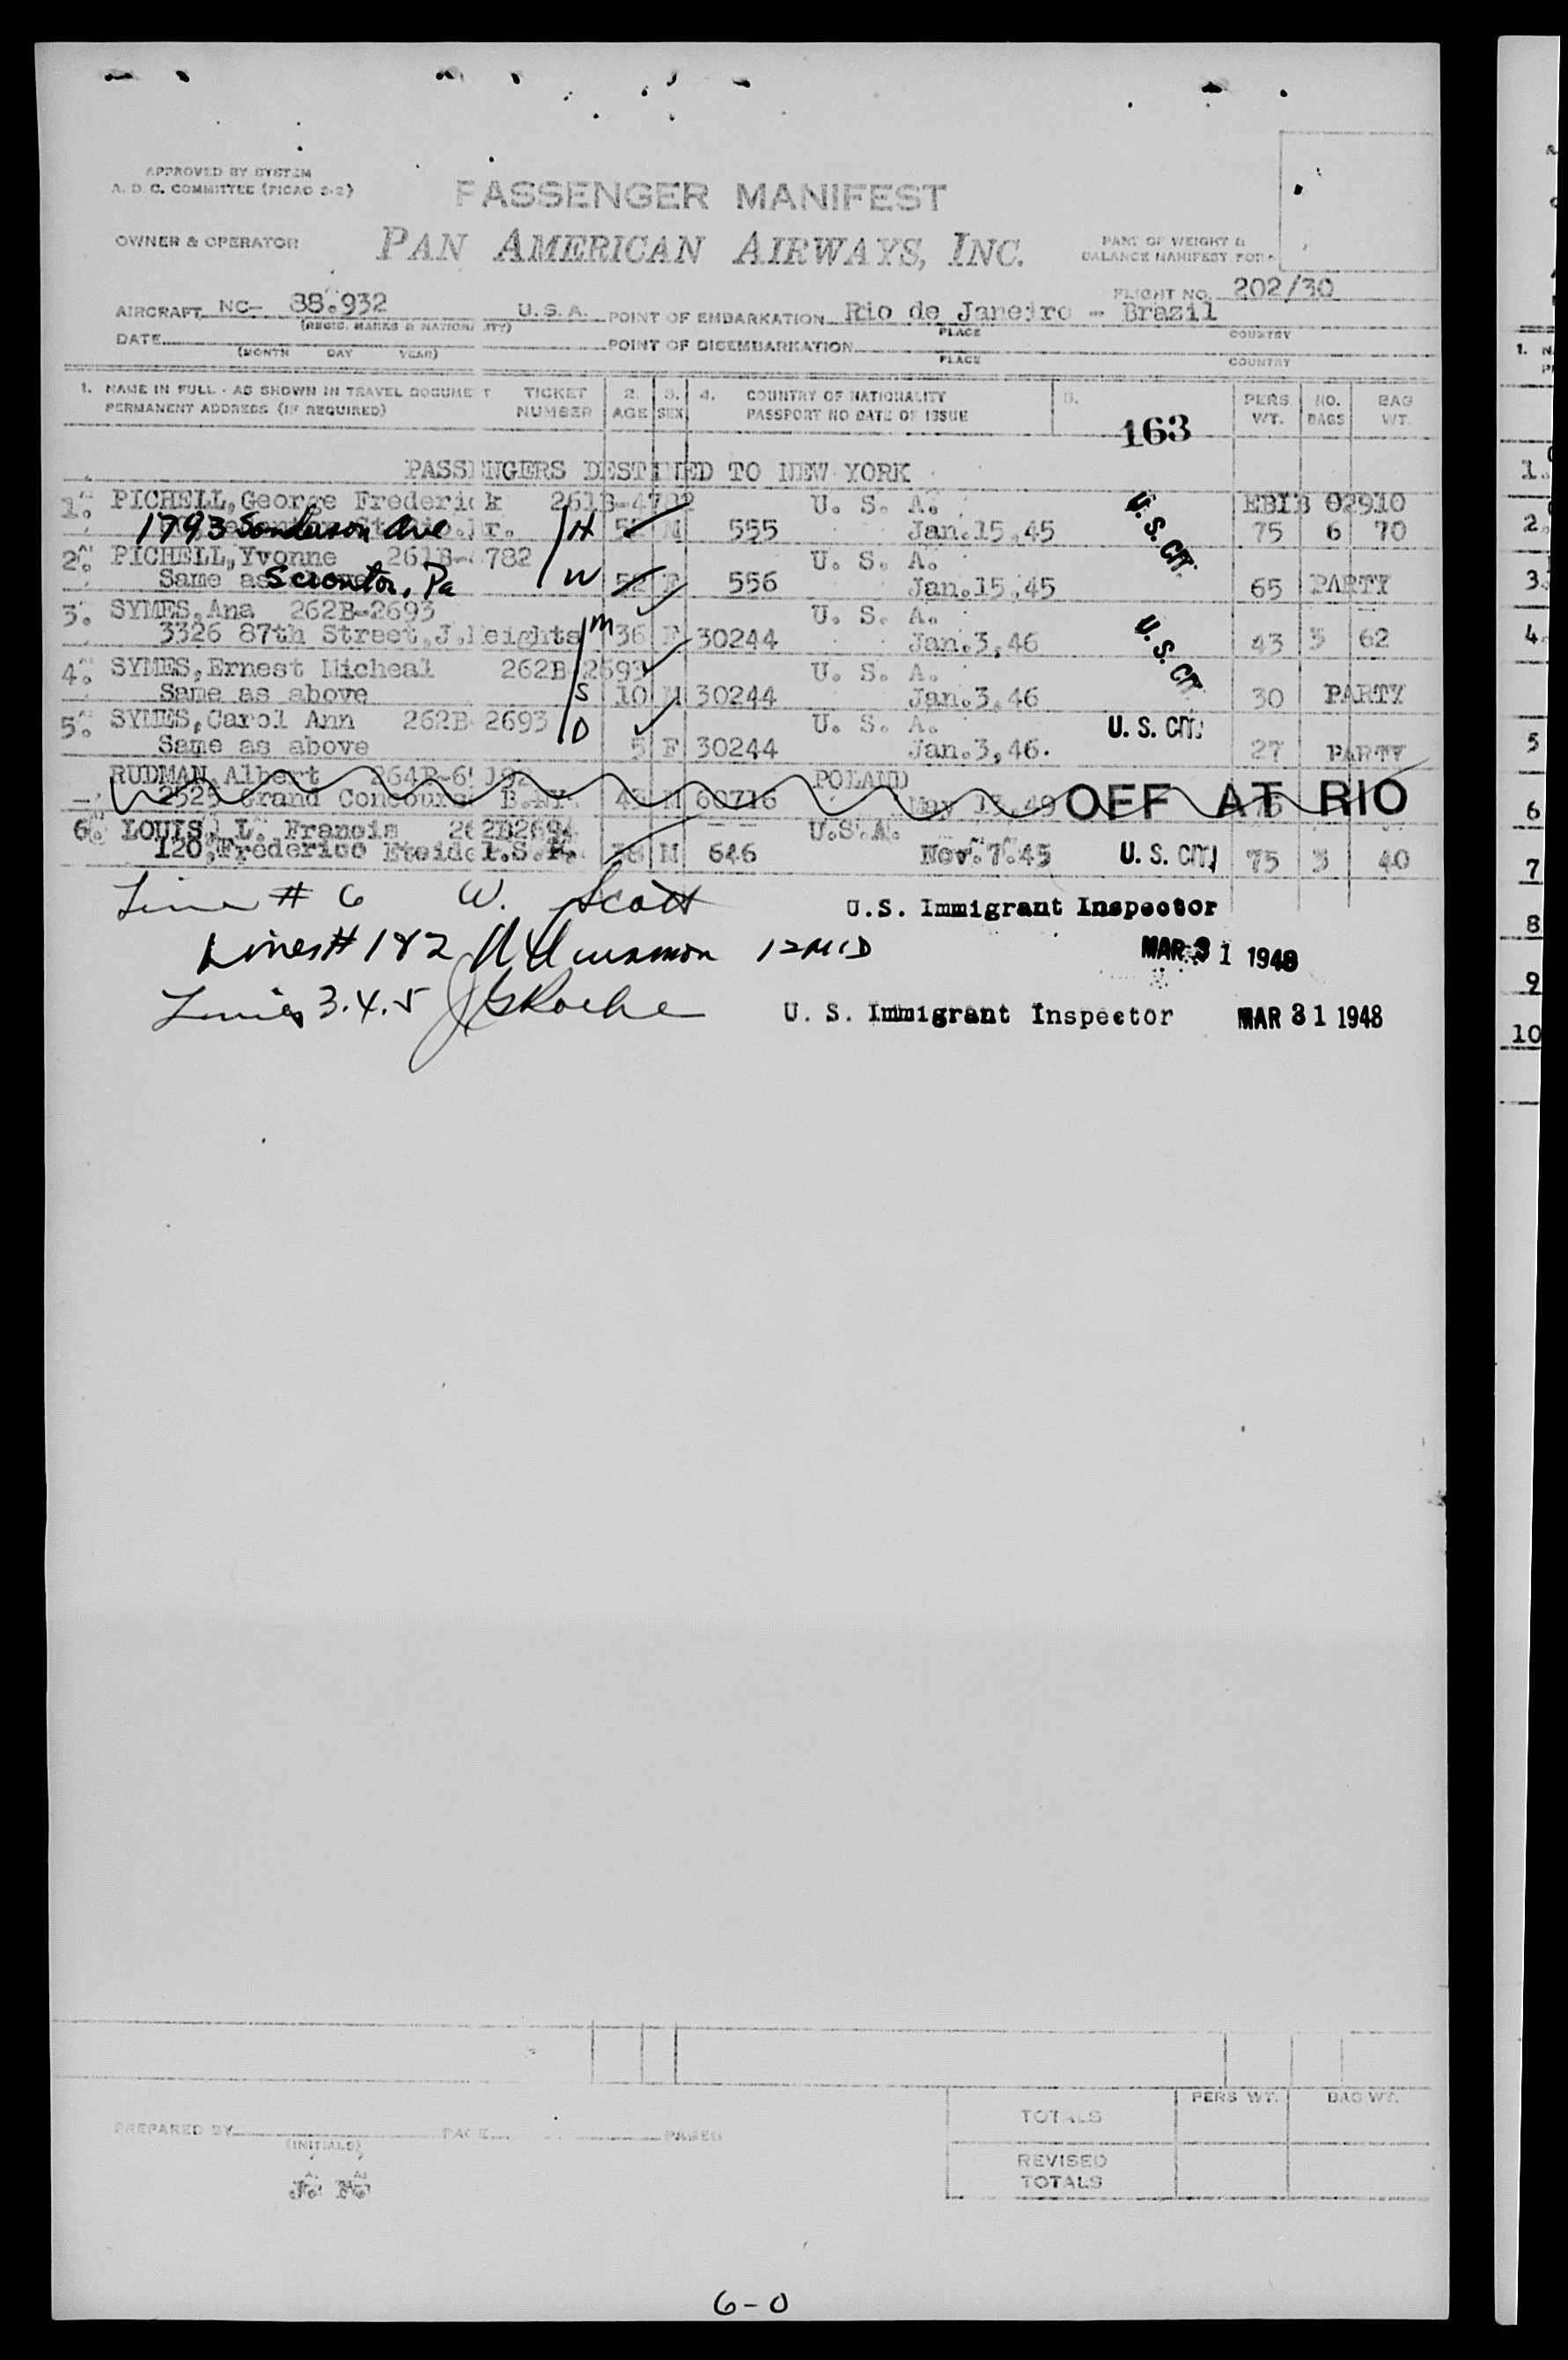 APPROVED BY SYSTEM
A. D. C. COMMITTEE (PICAO 2-2)
PASSENGER MANIFEST
OWNER & OPERATOR
PAN AMERICAN AIRWAYS, INC.
PART OF WEIGHT &
BALANCE MANIFEST FORM
FLIGHT NO. 202/30
AIRCRAFT NC- 88.932 U.S.A. POINT OF EMBARKATION Rio de Janeiro - Brazil
(REGIS. MARKS & NATIONALITY) PLACE COUNTRY
DATE POINT OF DISEMBARKATION
(MONTH DAY YEAR) PLACE COUNTRY
1. NAME IN FULL - AS SHOWN IN TRAVEL DOCUMENT TICKET 2. 3. 4. COUNTRY OF NATIONALITY 5. PERS. NO. BAG
PERMANENT ADDRESS (IF REQUIRED) NUMBER AGE SEX PASSPORT NO DATE OF ISSUE WT. BAGS WT.
163
PASSENGERS DESTINED TO NEW YORK
1. PICHELL, George Frederick 261B-4782 U. S. A. 02910
1793 Sanderson Ave H M 555 Jan.15.45 U. S. CIT. 75 6 70
2. PICHELL, Yvonne 261B-4782 U. S. A.
Same as Scranton, Pa W 52 F 556 Jan.15.45 65 PARTY
3. SYMES, Ana 262B-2693 U. S. A.
3326 87th Street, J.Heights M 36 F 30244 Jan.3,46 U. S. CIT. 43 3 62
4. SYMES, Ernest Micheal 262B 2693 U. S. A.
Same as above S 10 M 30244 Jan.3,46 30 PARTY
5. SYMES, Carol Ann 262B 2693 U. S. A. U. S. CIT.
Same as above D 5 F 30244 Jan.3,46. 27 PARTY
RUDMAN, Albert POLAND
2525 Grand Concourse B.N.Y. M 60716 May 13,49 OFF AT RIO
6. LOUIS, L. Francis 262B2694 U.S.A.
120, Frederico M 646 Nov.7.45 U. S. CIT. 75 3 40
Line # 6 W. Scott U.S. Immigrant Inspector
Lines # 1 & 2 12 MID MAR 31 1948
Lines 3.4.5 JGRoche U. S. Immigrant Inspector MAR 31 1948
PERS WT. BAG WT.
TOTALS
PREPARED BY PAGE PAGES
(INITIALS)
REVISED
TOTALS
6-0
1. N
1.
2.
3.
4.
5
6
7
8
9
10